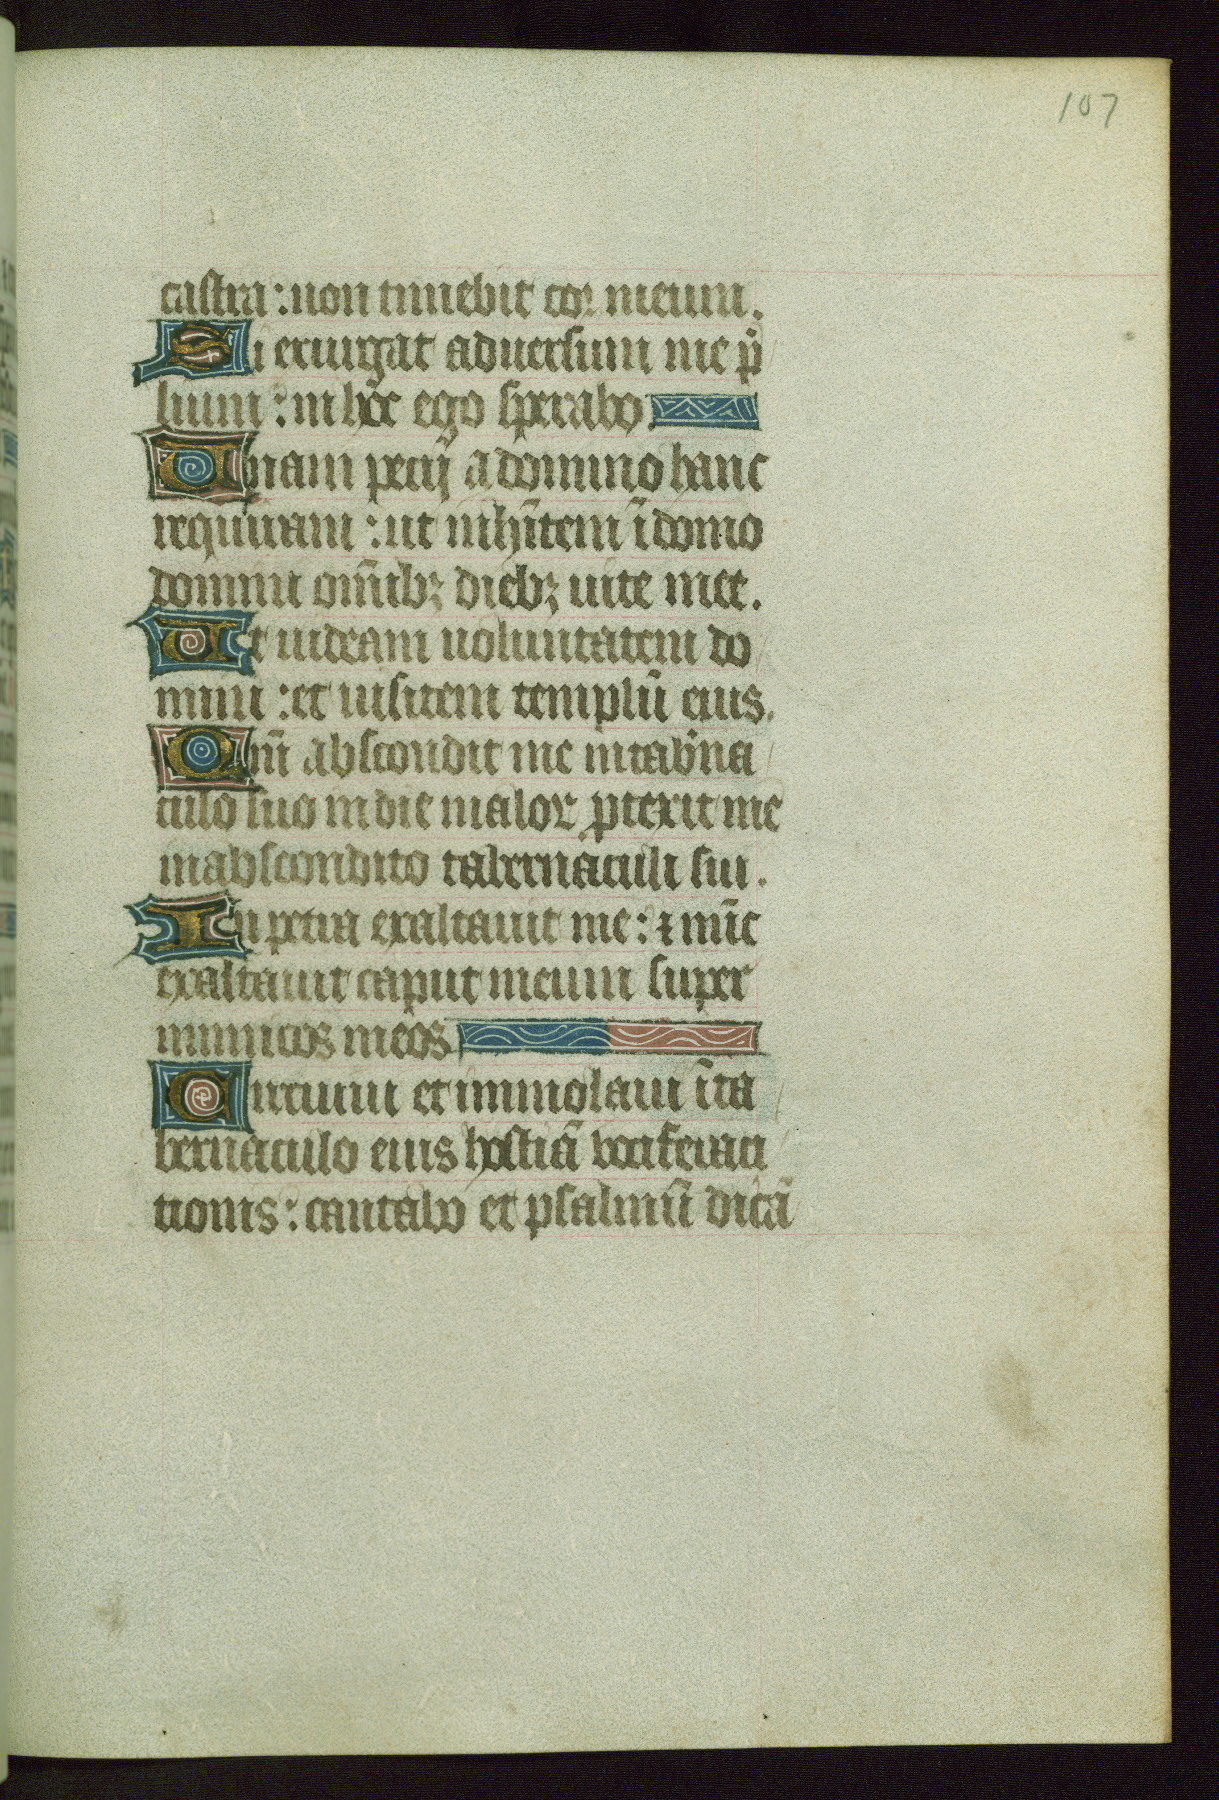 107
castra : non timebit cor meum.
Si exurgat aduersum me p̄
lium : in hoc ego sperabo.
Unam pecij a domino hanc
requiram : ut inhītem ī domo
domini om̄ibꝫ diebꝫ uite mee.
Ut uideam uoluntatem do
mini : et uisitem templū eius.
Qm̄ abscondit me in tab̄na
culo suo in die maloꝝ ꝓtexit me
in abscondito tabernaculi sui.
In petra exaltauit me : ⁊ nūc
exaltauit caput meum super
inimicos meos
Circuiui et immolaui ī ta
bernaculo eius hostiā vociferaci
tionis : cantabo et psalmū dicā